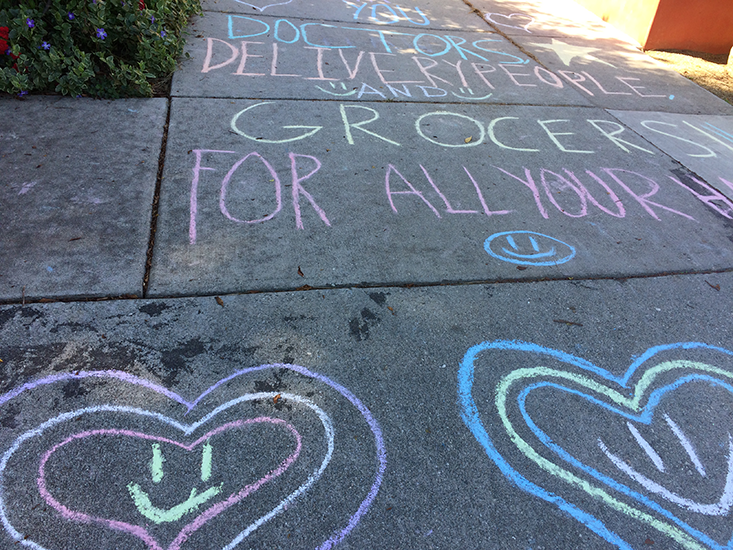 YOU
DOCTORS,
DELIVERY PEOPLE,
AND
GROCERS
FOR ALL YOUR